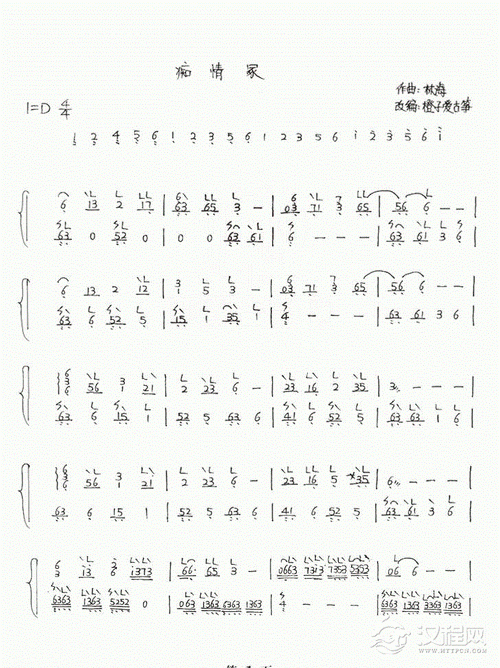 痴情冢
作曲:林海
1=D 4/4
改编:橙子爱古筝
1 2 4 5 6 1 2 3 5 6 1 2 3 5 6 1 2 3 5 6 i
6 13 2 17 | 63 65 3 - | 03 71 3 65 | 56 6 - - |
63 0 52 0 | 0 0 63 61 | 6 - - - | 63 61 3 6 |
6 13 2 12 | 3 1 5 3 - | 03 71 3 65 | 56 6 - - |
63 6 52 5 | 15 1 35 1 | 4 - - - | 63 61 3 6 |
56 3 1 21 | 2 23 6 - | 23 16 2 35 | 3 - - - |
63 6 15 1 | 52 5 63 6 | 41 6 52 5 | 63 63 1 6 |
56 3 1 21 | 2 23 6 - | 23 16 5 35 | 6 - - - |
63 6 15 1 | 52 5 63 6 | 41 6 52 5 | 63 61 3 6 |
6 3 i3 6 3 1373 | 66 65 3 - | 0663 3713 7353 5353 | 06 6 - - |
6363 1363 5252 0 | 063 1363 6363 6363 | 4 - - - | 6363 1363 3363 6363 |
汉程网
www.httpcn.com